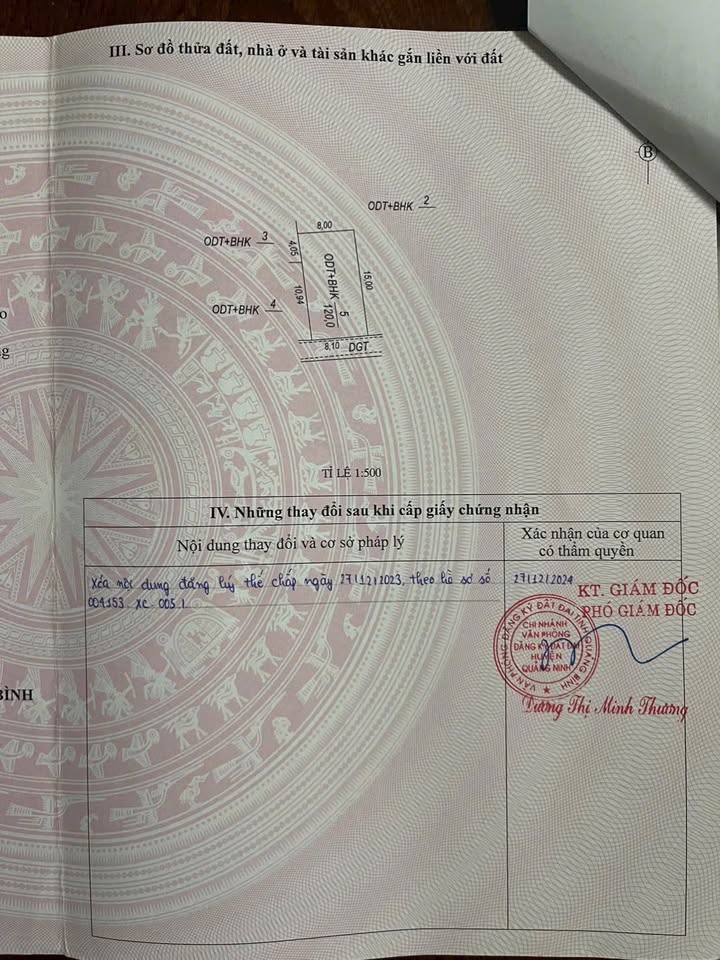 III. Sơ đồ thửa đất, nhà ở và tài sản khác gắn liền với đất
B
ODT+BHK 2
8,00
ODT+BHK 3
4,05
ODT+BHK 5
120,0
15,00
10,94
ODT+BHK 4
8,10 DGT
o
g
TỈ LỆ 1:500
IV. Những thay đổi sau khi cấp giấy chứng nhận
Nội dung thay đổi và cơ sở pháp lý
Xác nhận của cơ quan
có thẩm quyền
Xóa nội dung đăng ký thế chấp ngày 27/12/2023, theo hồ sơ số
004153.XC.005.1
27/12/2024
KT. GIÁM ĐỐC
PHÓ GIÁM ĐỐC
VĂN PHÒNG ĐĂNG KÝ ĐẤT ĐAI TỈNH QUẢNG BÌNH
CHI NHÁNH
VĂN PHÒNG
ĐĂNG KÝ ĐẤT ĐAI
HUYỆN
QUẢNG NINH
Dương Thị Minh Thương
BÌNH